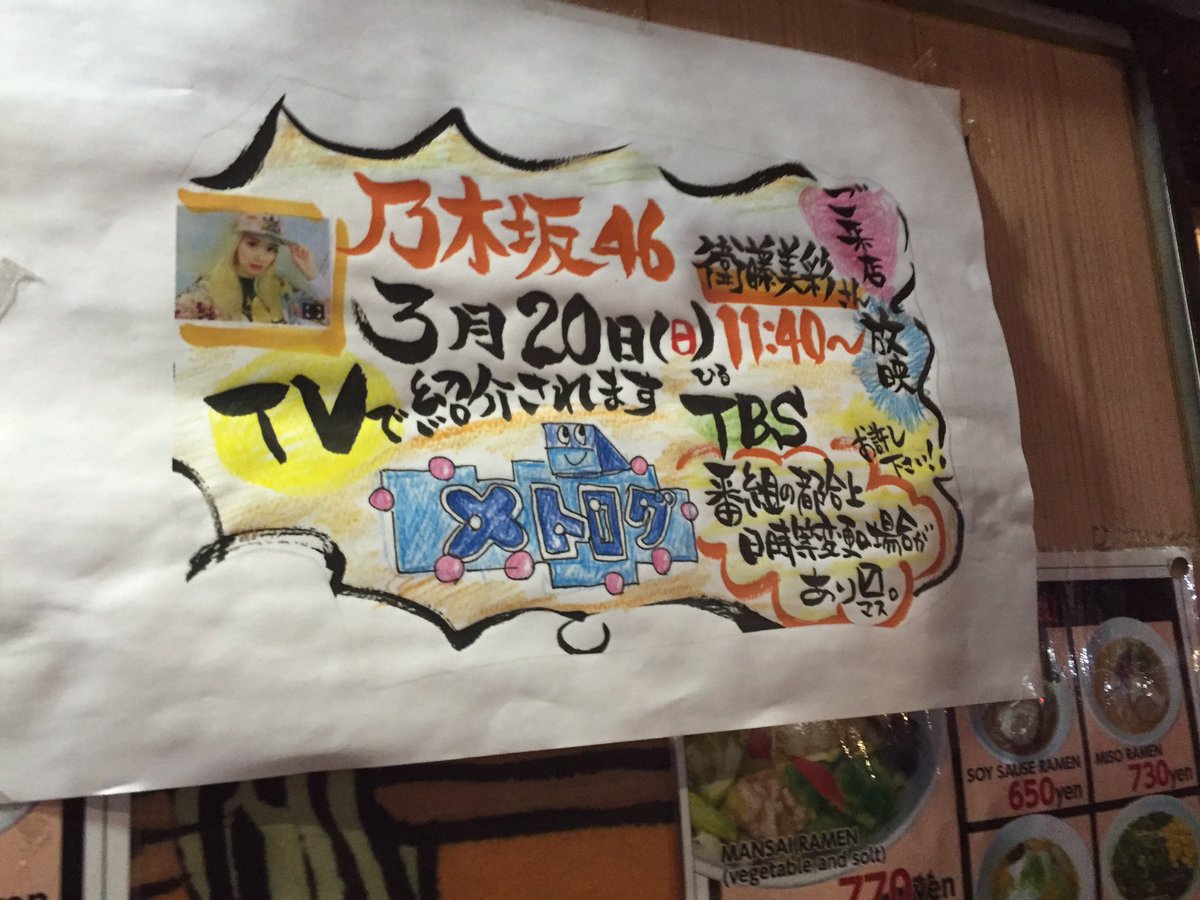 乃木坂46
衛藤美彩さん
ご来店
3月20日(日)
11:40〜
ひる
放映
TVで紹介されます
TBS
お許し
下さい!!
メトログ
番組の都合上
日時等変更の場合が
あり〼。
マス
SOY SAUSE RAMEN
650yen
MISO RAMEN
730yen
MANSAI RAMEN
(vegetable and solt)
770yen